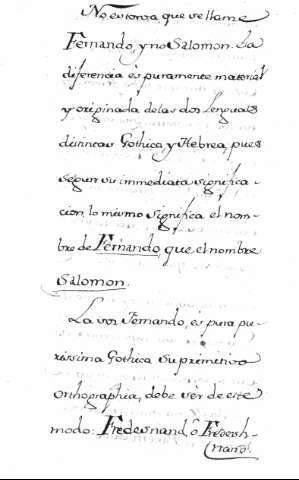 No estorva que se llame
Fernando, y no Salomon. La
diferencia es puramente material
y originada de las dos Lenguas
distintas Gothica, y Hebrea, pues
segun su immediata significa-
cion, lo mismo significa el nom-
bre de Fernando, que el nombre
Salomon.
La voz Fernando, es pura pu-
rissima Gothica su primitivo
orthographia, debe sér de este
modo: Fredesnand, ô Fredersh-
nand.